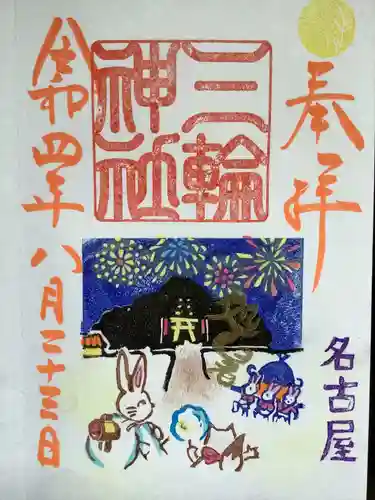 奉拝
三輪
神社
名古屋
令和四年八月二十三日